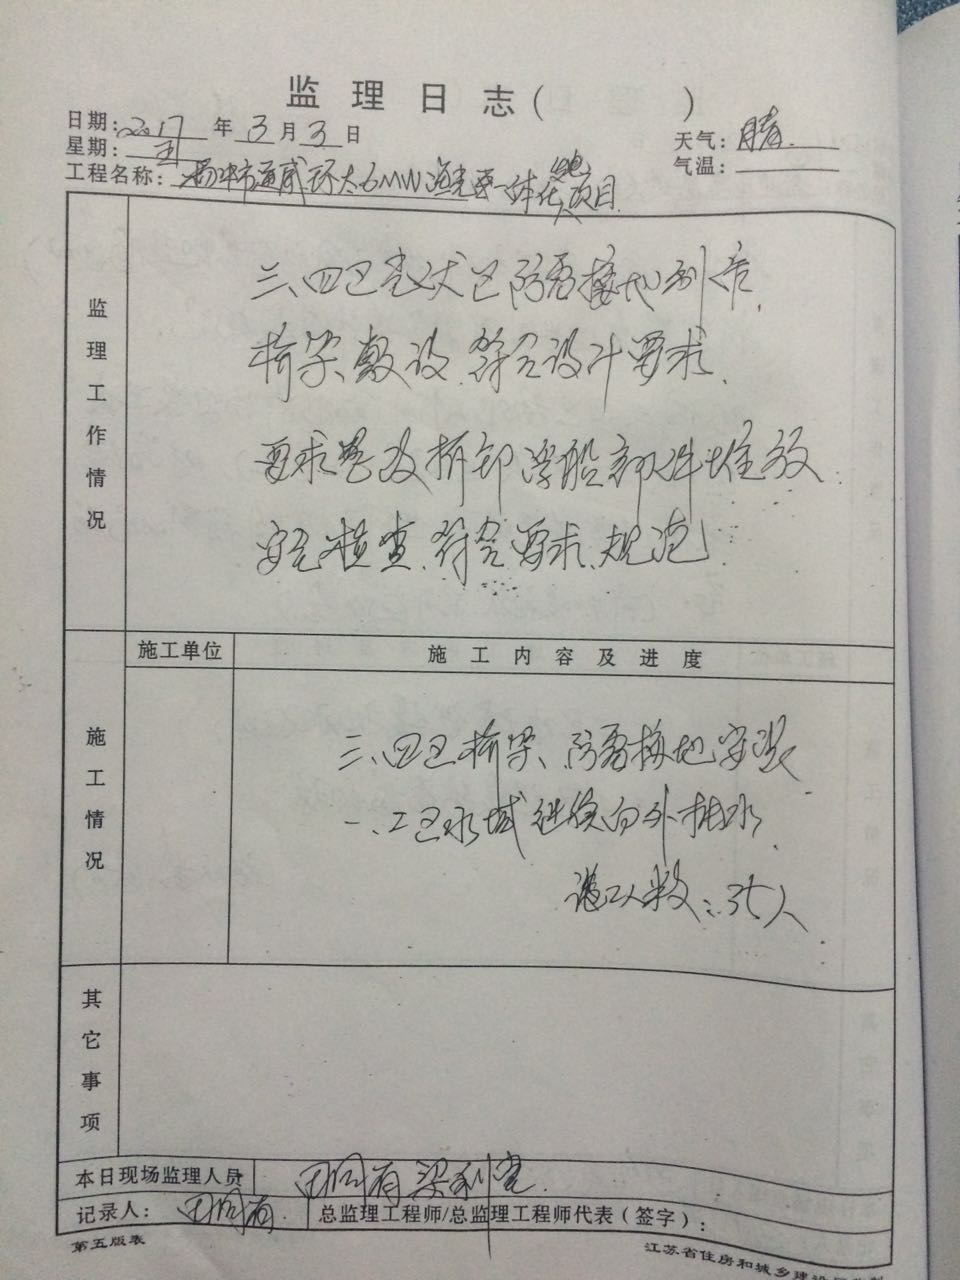 监理日志( )
日期:2017年3月3日
天气:晴
星期:五
气温:
工程名称:扬中市通威环太6MW渔光一体化发电项目
监理工作情况
三、四卫光伏区防雷接地制作、
桥架敷设、符合设计要求、
要求思及拆卸浮船部件堆放
安全检查、符合要求、规范
施工单位
施工内容及进度
施工情况
三、四卫桥架、防雷接地安装
一、二卫水域继续向外抽水
人数:35人
其它事项
本日现场监理人员
田同有 梁利宽
记录人:田同有
总监理工程师/总监理工程师代表(签字):
第五版表
江苏省住房和城乡建设厅